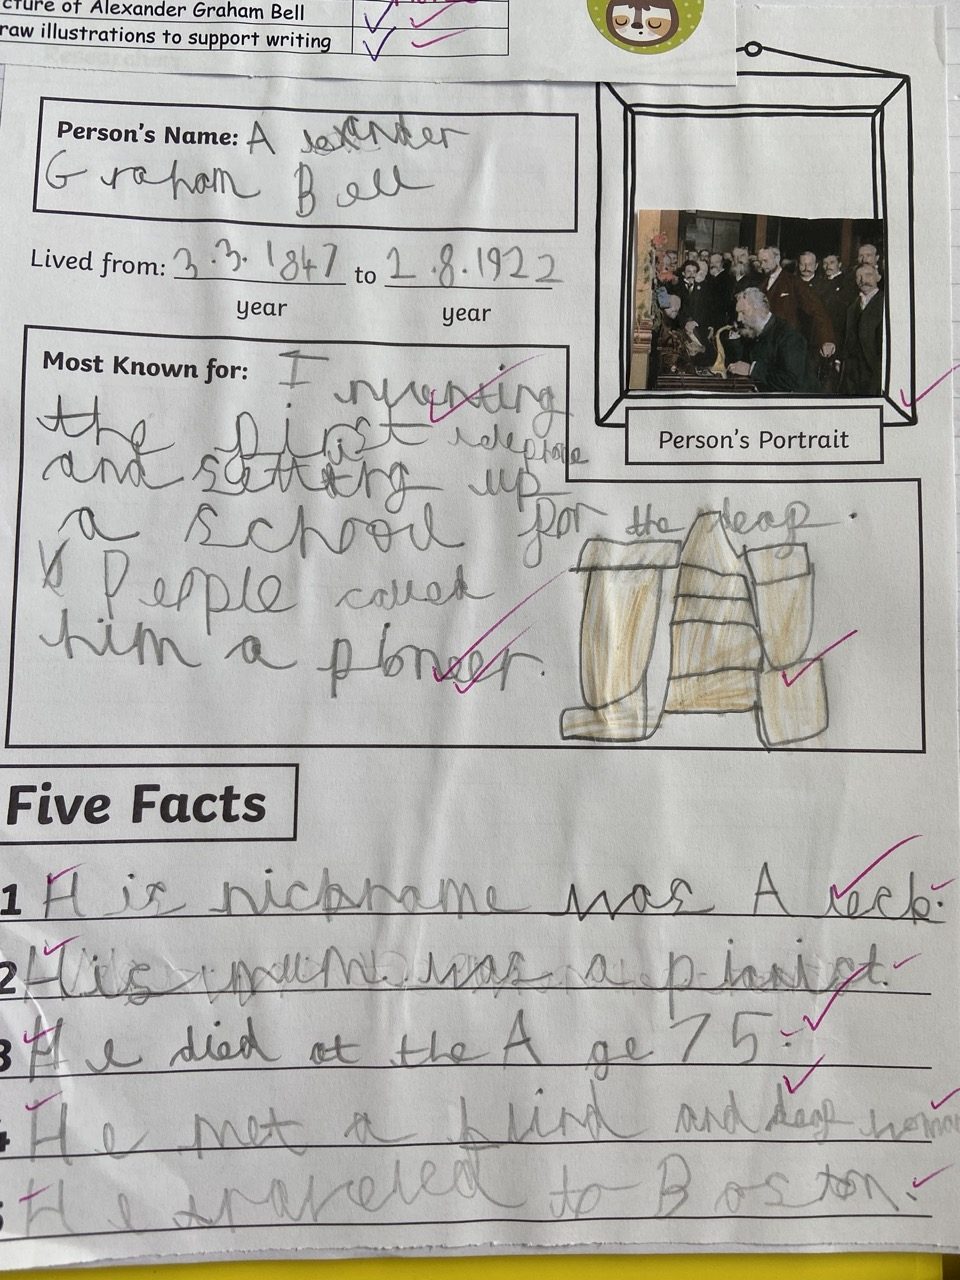 cture of Alexander Graham Bell
raw illustrations to support writing
Person's Name: Alexander
Graham Bell
Lived from: 3.3.1847 to 2.8.1922
year
year
Person's Portrait
Most Known for: Inventing
the first
and setting up
a school for the deaf.
People called
him a
Five Facts
1 His nickname was Aleck.
2 His mum was a pianist.
3 He died at the Age 75.
4 He met a blind and deaf woman
5 He traveled to Boston.